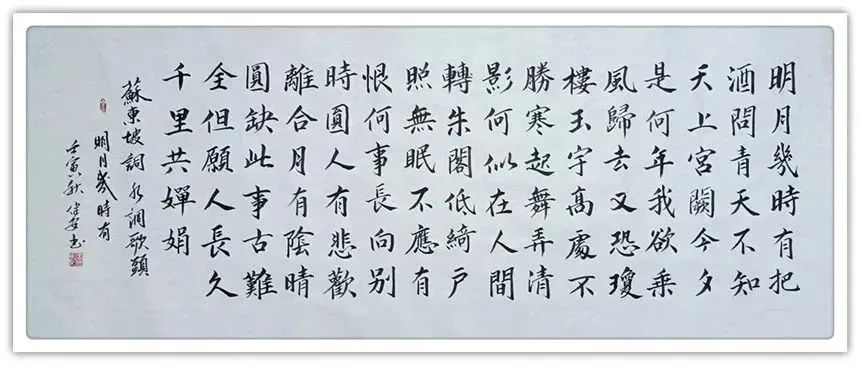 明月幾時有把
酒問青天不知
天上宮闕今夕
是何年我欲乘
風歸去又恐瓊
樓玉宇高處不
勝寒起舞弄清
影何似在人間
轉朱閣低綺戶
照無眠不應有
恨何事長向别
時圓人有悲歡
離合月有陰晴
圓缺此事古難
全但願人長久
千里共嬋娟
蘇東坡詞水調歌頭
明月幾時有
壬寅秋书